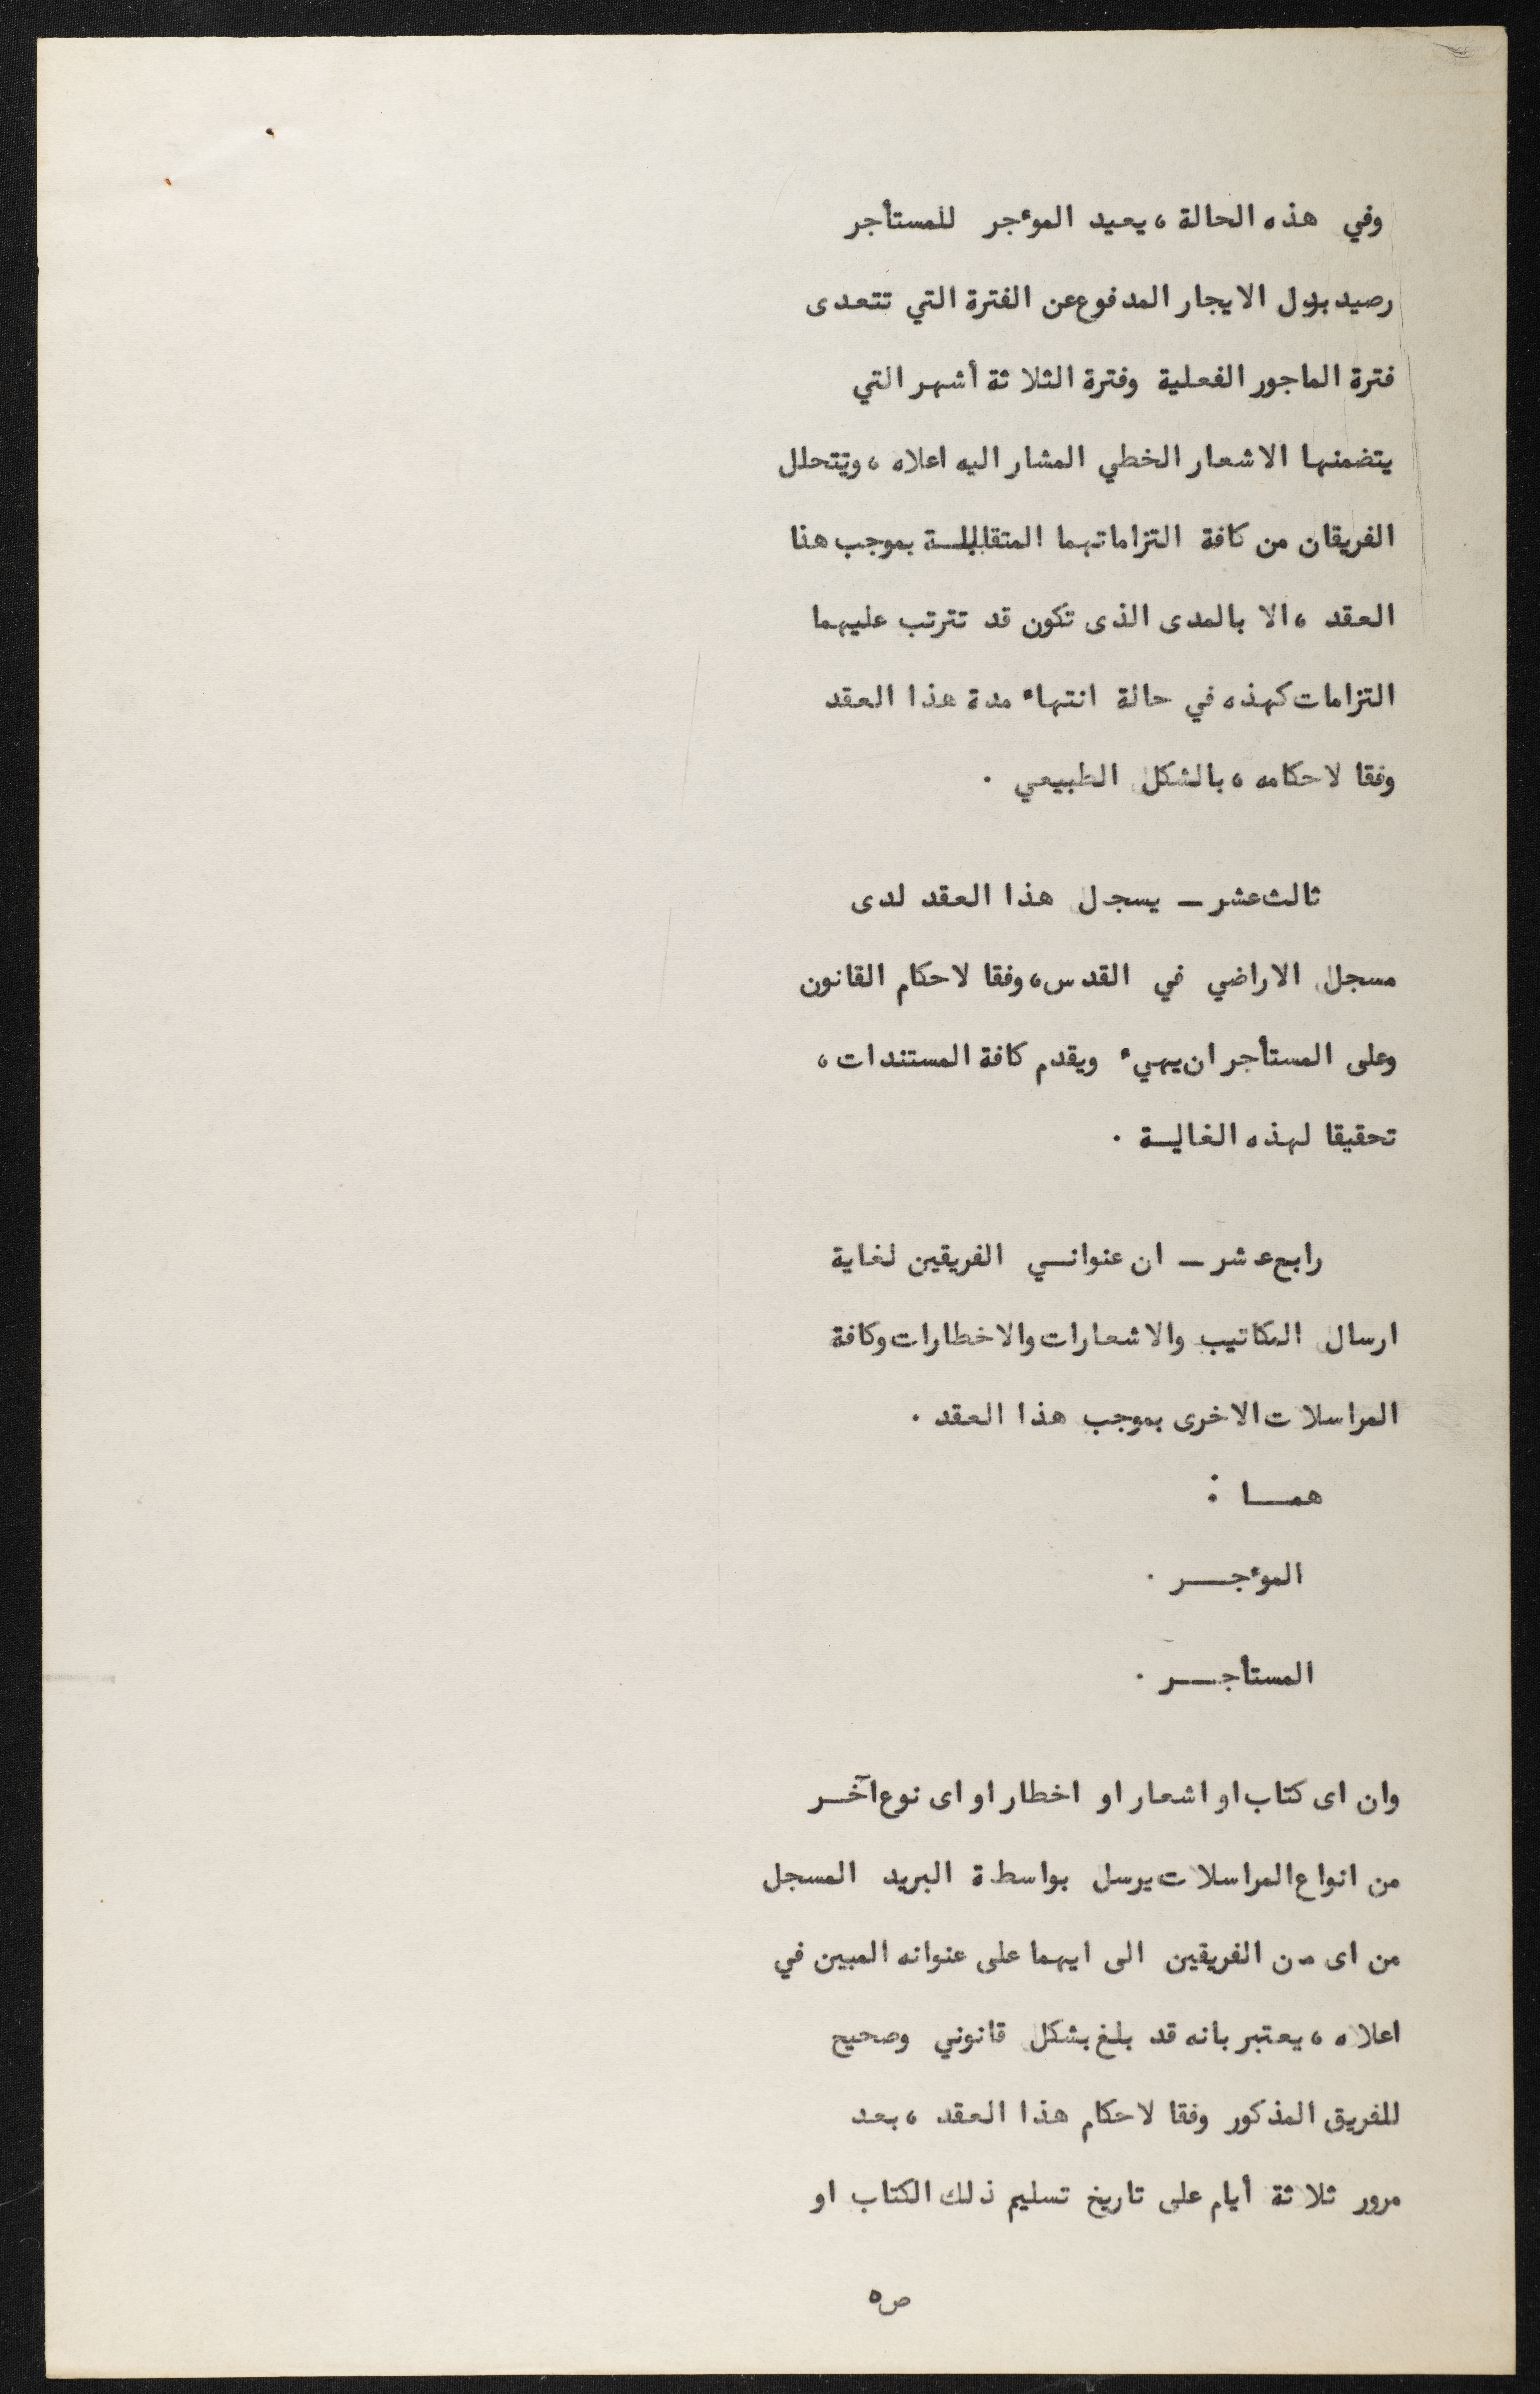 وفي هذه الحالة ، يعيد الموءجر للمستأجر
رصيد بدل الايجار المدفوع عن الفترة التي تتعدى
فترة الماجور الفعلية وفترة الثلاثة أشهر التي
يتضمنها الاشعار الخطي المشار اليه اعلاه ، ويتحلل
الفريقان من كافة التزاماتهما المتقابلـــة بموجب هذا
العقد ، الا بالمدى الذى تكون قد تترتب عليهما
التزامات كهذه في حالة انتهاء مدة هذا العقد
وفقا لاحكامه ، بالشكل الطبيعي .
ثالث عشر ــ يسجل هذا العقد لدى
مسجل الاراضي في القدس ، وفقا لاحكام القانون
وعلى المستأجر ان يهيء ويقدم كافة المستندات ،
تحقيقا لهذه الغايـــة .
رابع عشر ــ ان عنوانـــي الفريقين لغاية
ارسال المكاتيب والاشعارات والاخطارات وكافة
المراسلات الاخرى بموجب هذا العقد .
همـــا :
الموءجـــر .
المستأجـــر .
وان اى كتاب او اشعار او اخطار او اى نوع آخـــر
من انواع المراسلات يرسل بواسطة البريد المسجل
من اى من الفريقين الى ايهما على عنوانه المبين في
اعلاه ، يعتبر بانه قد بلغ بشكل قانوني وصحيح
للفريق المذكور وفقا لاحكام هذا العقد ، بعد
مرور ثلاثة أيام على تاريخ تسليم ذلك الكتاب او
ص٥